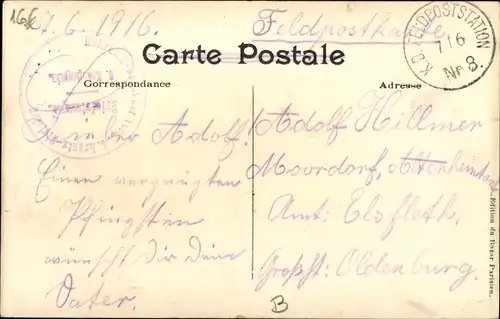 16 E
7. 6. 1916.
Feldpostkarte
K.D. FELDPOSTSTATION
7/6
Nr 8.
Carte Postale
Correspondance
Adresse
Adolf!
Einen vergnügten
Pfingsten
wünscht Dir Dein
Vater.
Adolf Hillmer
Moordorf, Altenhuntorf
Amt: Elsfleth,
Großh: Oldenburg.
Edition du Bazar Parisien.
B